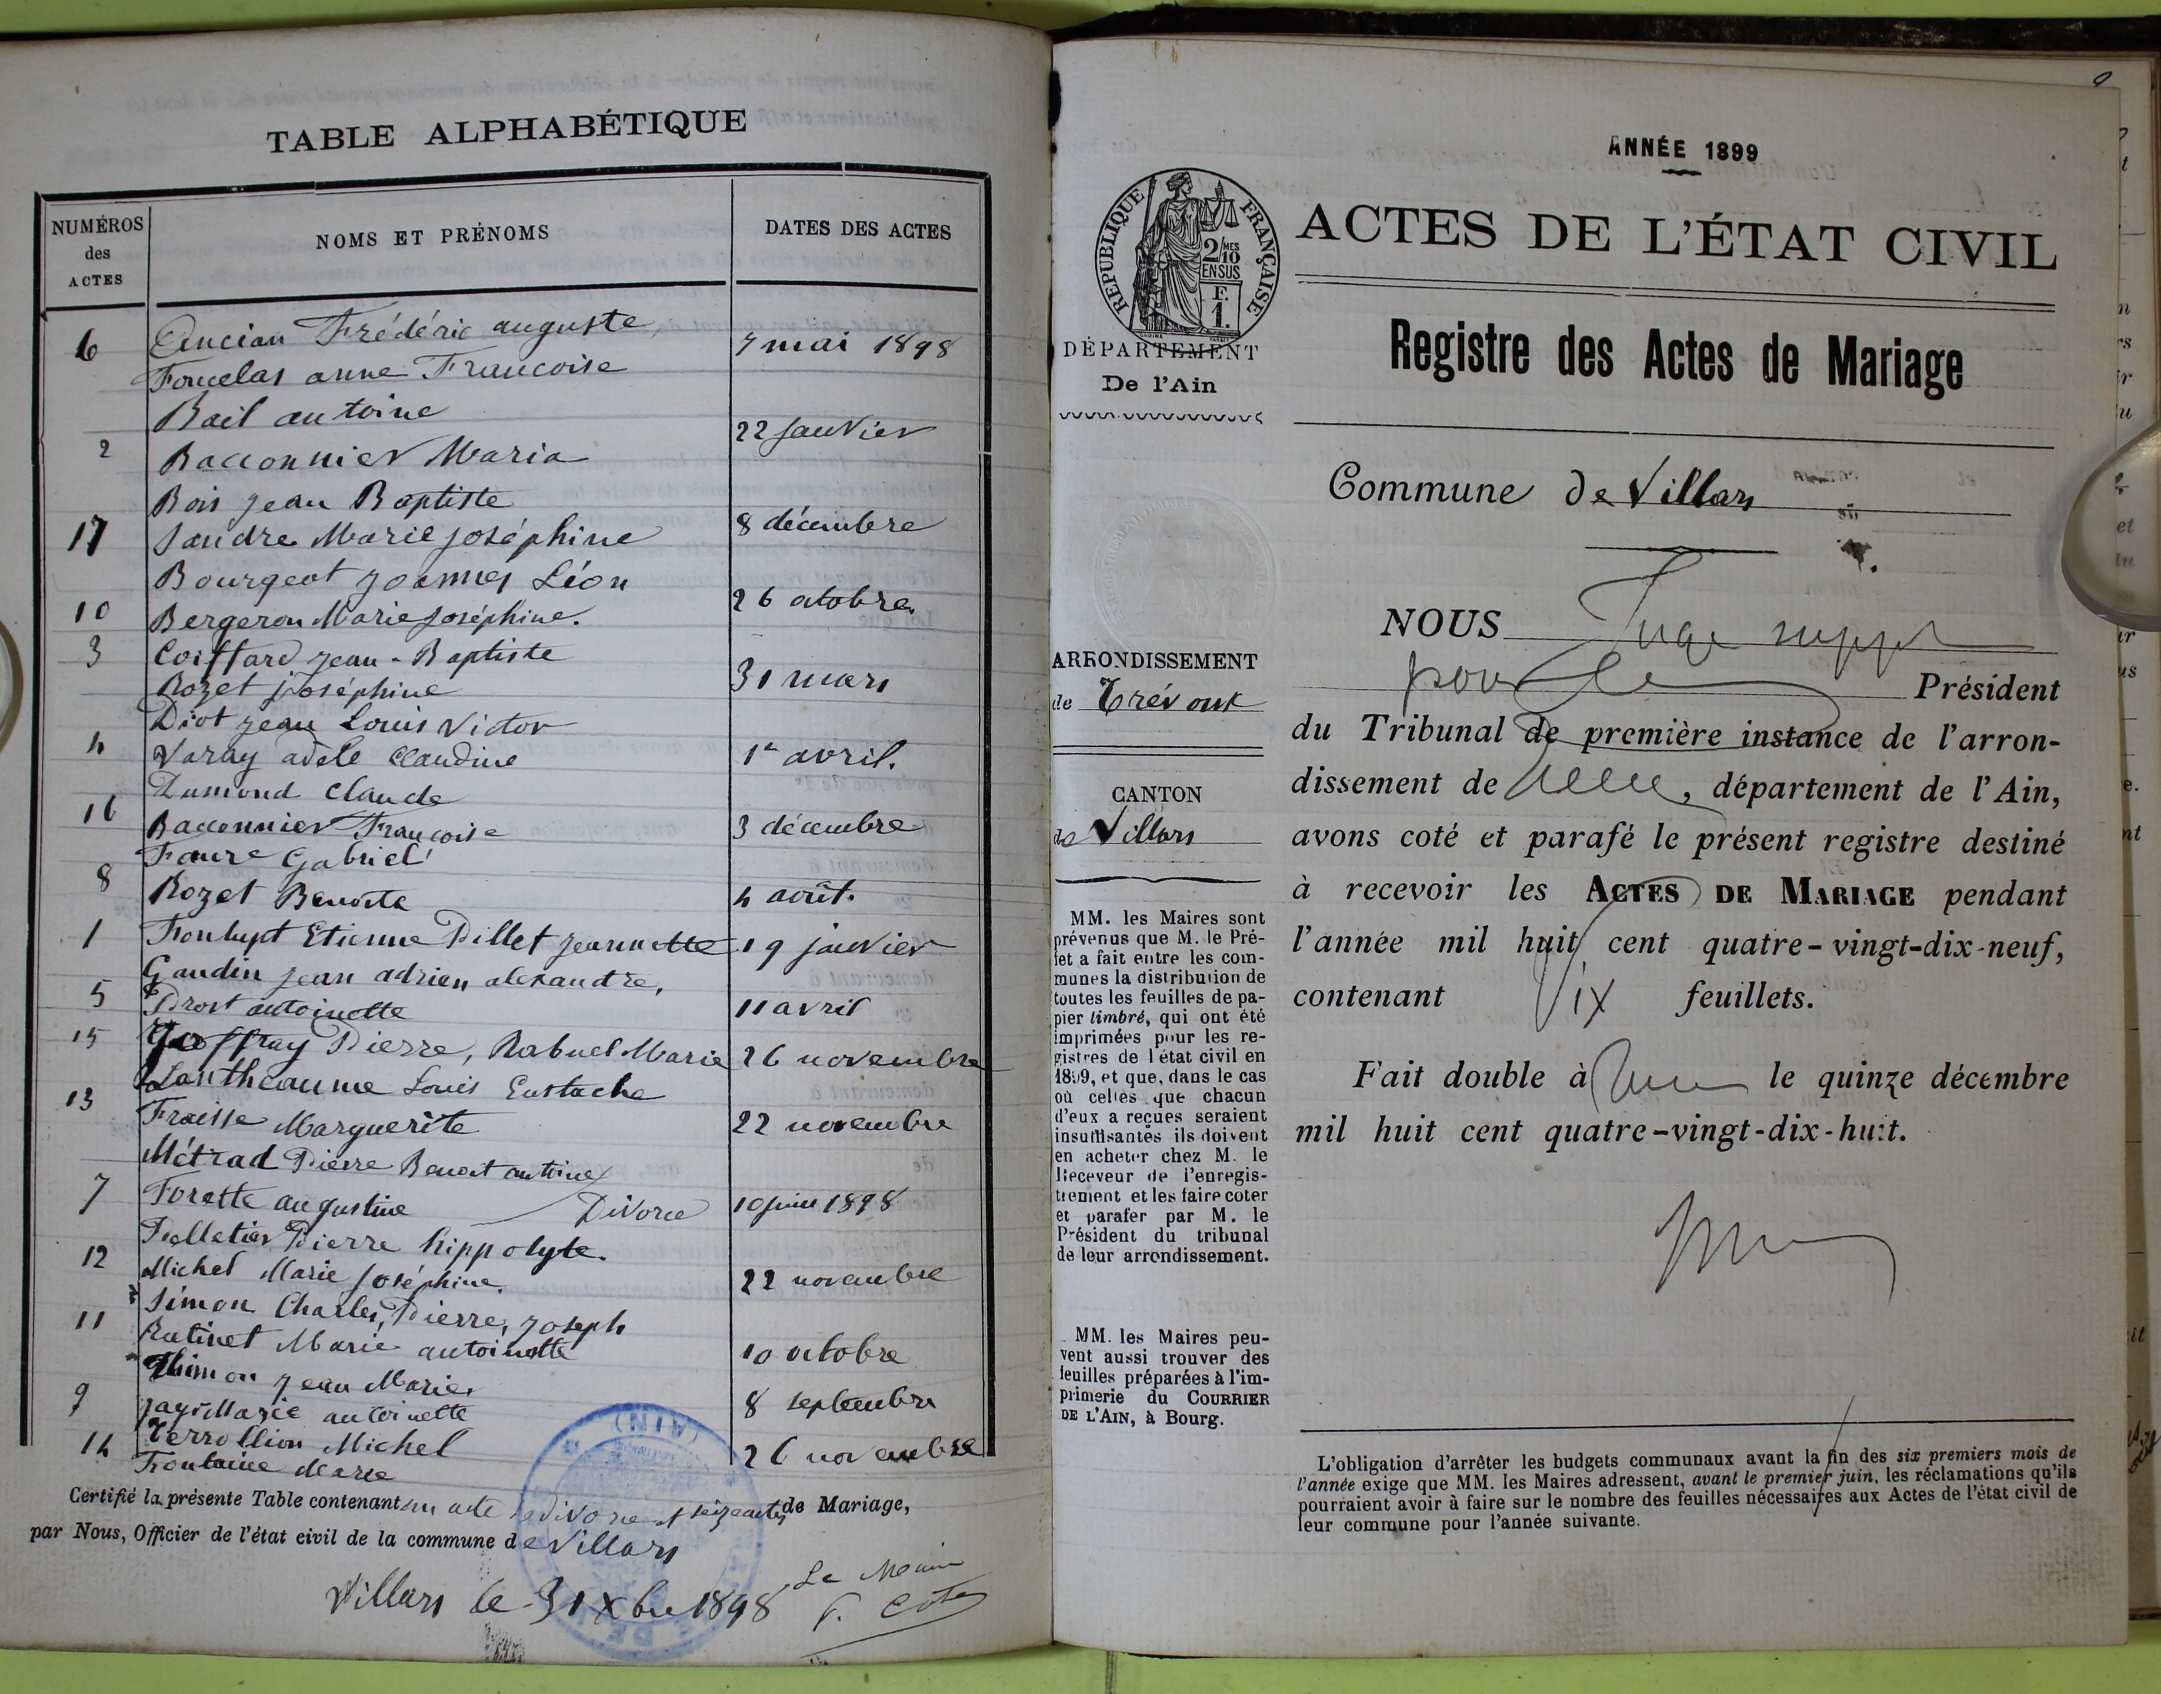 TABLE ALPHABÉTIQUE
NUMÉROS des ACTES
NOMS ET PRÉNOMS
DATES DES ACTES
6 Ancian Frédéric auguste,
Foucelas anne Francoise 7 mai 1898
Bail antoine
2 Baconnier Maria 22 Janvier
Bois Jean Baptiste
17 Sandre Marie Joséphine 8 décembre
Bourgeot Joannes Léon
10 Bergeron Marie Joséphine. 26 octobre
3 Coiffard Jean-Baptiste
Rozet Joséphine 31 mars
Diot Jean Louis Victor
4 Varay adèle Claudine 1er avril.
Dumond Claude
16 Baconnier Francoise 3 décembre
Faure Gabriel
8 Rozet Benoite 4 août.
1 Fonlupt Etienne Pillet Jeannette 19 janvier
Gaudin Jean adrien alexandre,
5 Prost antoinette 11 avril
15 Geoffray Pierre, Rabuel Marie 26 novembre
Lantheaume Louis Eustache
13 Fraisse Marguerite 22 novembre
Métrad Pierre Benoit antoine
7 Forette augustine Divorce 10 juin 1898
Pelletier Pierre hippolyte.
12 Michel Marie Joséphine. 22 novembre
Simon Charles, Pierre, Joseph
11 Ratinet Marie antoinette 10 octobre
Thimon Jean Marie
9 Jay Marie antoinette 8 septembre
14 Verrollion Michel
Fontaine Marie 26 novembre
Certifié la présente Table contenant un acte de divorce et seize actes de Mariage,
par Nous, Officier de l'état civil de la commune de Villars
Villars le 31 Xbre 1898
Le Maire
(AIN)
ANNÉE 1899
RÉPUBLIQUE FRANÇAISE
2/10 MES
EN SUS
F.
1.
ACTES DE L'ÉTAT CIVIL
Registre des Actes de Mariage
Commune de Villars
NOUS Juge suppt
pour le Président
du Tribunal de première instance de l'arron-
dissement de , département de l'Ain,
avons coté et parafé le présent registre destiné
à recevoir les ACTES DE MARIAGE pendant
l'année mil huit cent quatre-vingt-dix-neuf,
contenant dix feuillets.
Fait double à le quinze décembre
mil huit cent quatre-vingt-dix-huit.
DÉPARTEMENT
De l'Ain
ARRONDISSEMENT
de Trévoux
CANTON
de Villars
MM. les Maires sont
prévenus que M. le Pré-
fet a fait entre les com-
munes la distribution de
toutes les feuilles de pa-
pier timbré, qui ont été
imprimées pour les re-
gistres de l'état civil en
1899, et que, dans le cas
où celles que chacun
d'eux a reçues seraient
insuffisantes ils doivent
en acheter chez M. le
Receveur de l'enregis-
trement et les faire coter
et parafer par M. le
Président du tribunal
de leur arrondissement.
MM. les Maires peu-
vent aussi trouver des
feuilles préparées à l'im-
primerie du COURRIER
DE L'AIN, à Bourg.
L'obligation d'arrêter les budgets communaux avant la fin des six premiers mois de
l'année exige que MM. les Maires adressent, avant le premier juin, les réclamations qu'ils
pourraient avoir à faire sur le nombre des feuilles nécessaires aux Actes de l'état civil de
leur commune pour l'année suivante.